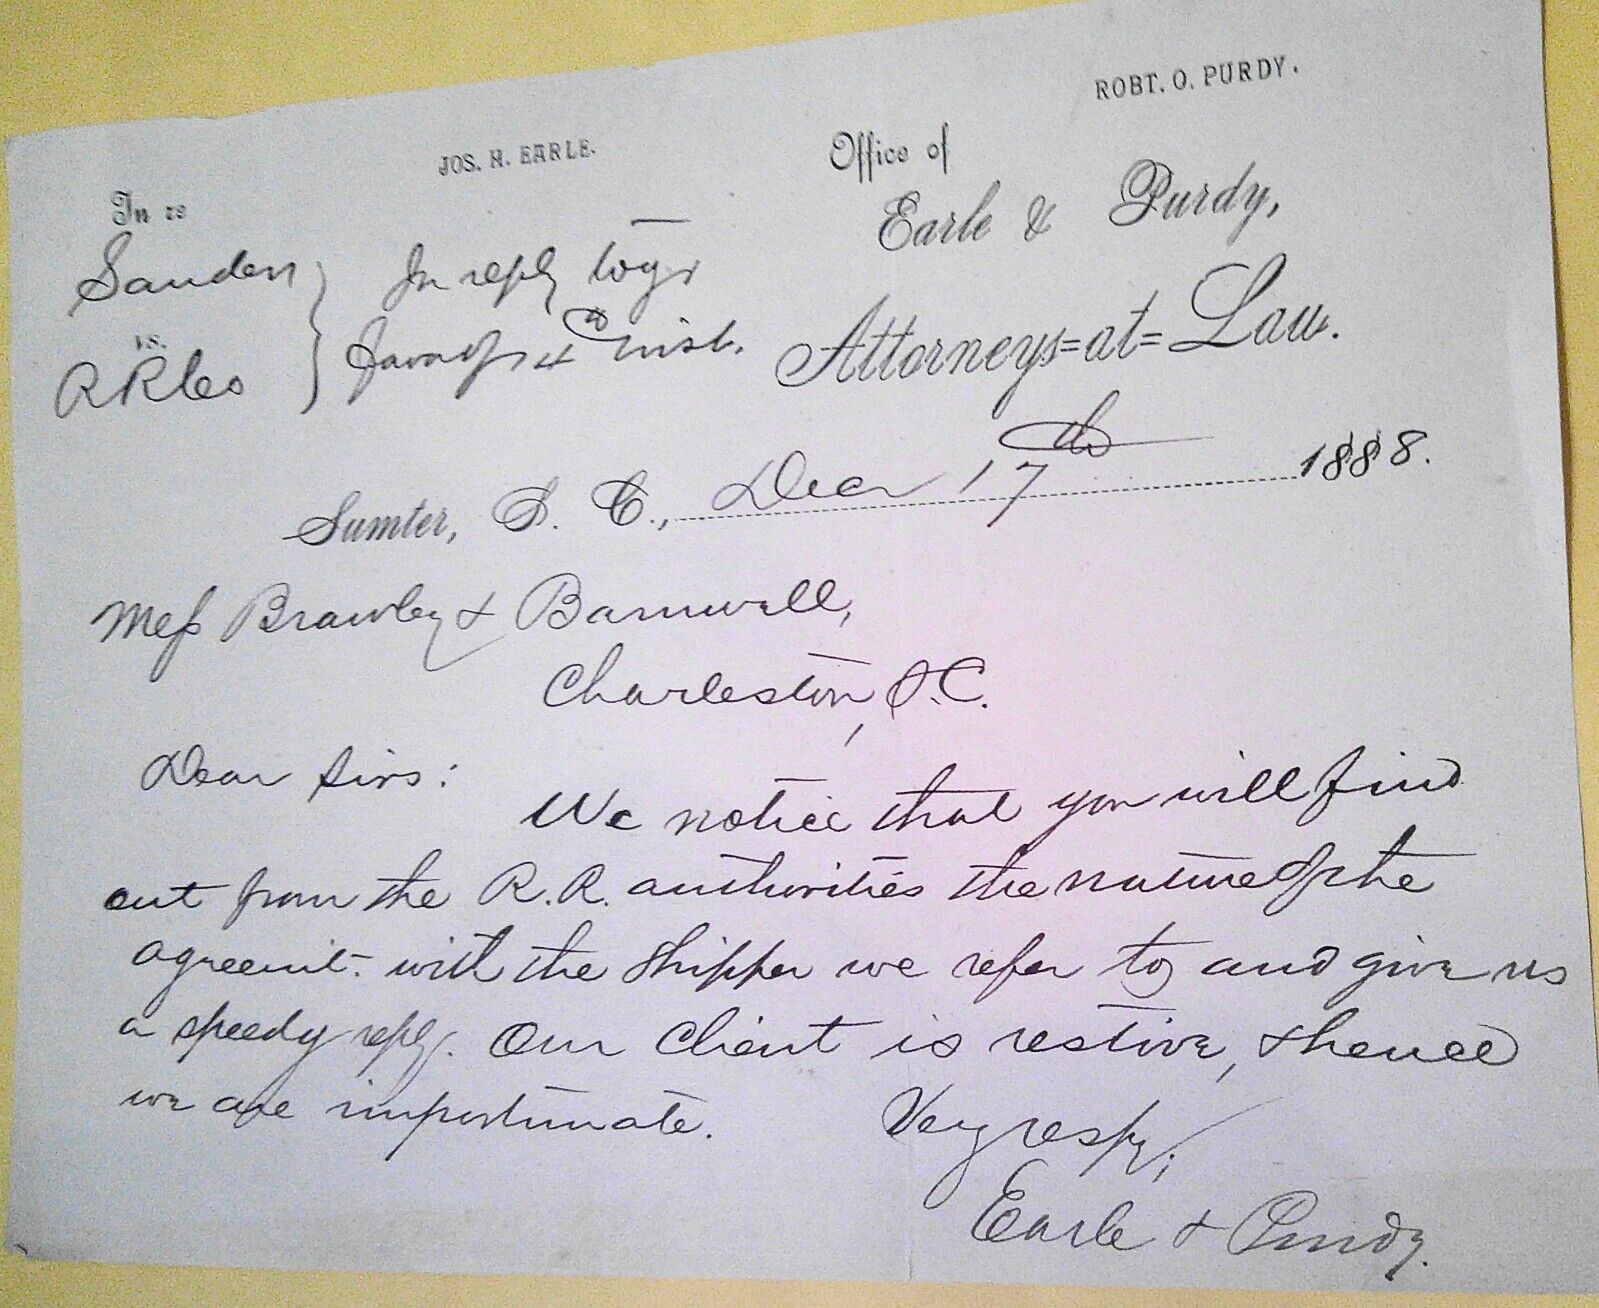 JOS. H. EARLE.
ROBT. O. PURDY.
Office of
Earle & Purdy,
Attorneys=at=Law.
In re
Sanders
vs.
RR Co
In reply to yr
favor of 14th inst.
Sumter, S. C., Dec 17th 1888.
Mess Brawley & Barnwell,
Charleston, S.C.
Dear Sirs:
We notice that you will find
out from the R.R. authorities the nature of the
agreemt. with the shipper we refer to and give us
a speedy reply. Our client is restive, & hence
we are importunate.
Very respy;
Earle & Purdy.